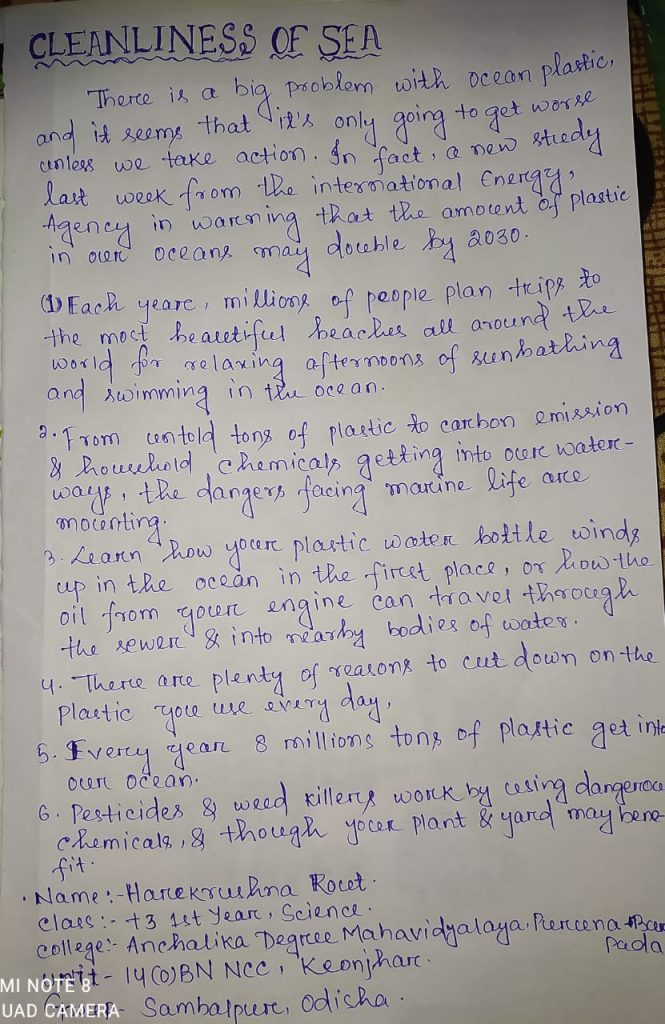 CLEANLINESS OF SEA
There is a big problem with ocean plastic,
and it seems that it's only going to get worse
unless we take action. In fact, a new study
last week from the international Energy,
Agency in warning that the amount of plastic
in our oceans may double by 2030.
(1) Each year, millions of people plan trips to
the most beautiful beaches all around the
world for relaxing afternoons of sunbathing
and swimming in the ocean.
2. From untold tons of plastic to carbon emission
& household chemicals getting into our water-
ways, the dangers facing marine life are
mounting.
3. Learn how your plastic water bottle winds
up in the ocean in the first place, or how the
oil from your engine can travel through
the sewer & into nearby bodies of water.
4. There are plenty of reasons to cut down on the
Plastic you use every day,
5. Every year 8 millions tons of plastic get into
our ocean.
6. Pesticides & weed killers work by using dangerou
chemicals, & though your plant & yard may bene-
fit.
Name:- Harekrushna Rout.
class:- +3 1st Year, Science.
college:- Anchalika Degree Mahavidyalaya,
pada
Unit - 14(O)BN NCC, Keonjhar.
Group - Sambalpur, Odisha.
MI NOTE 8
UAD CAMERA